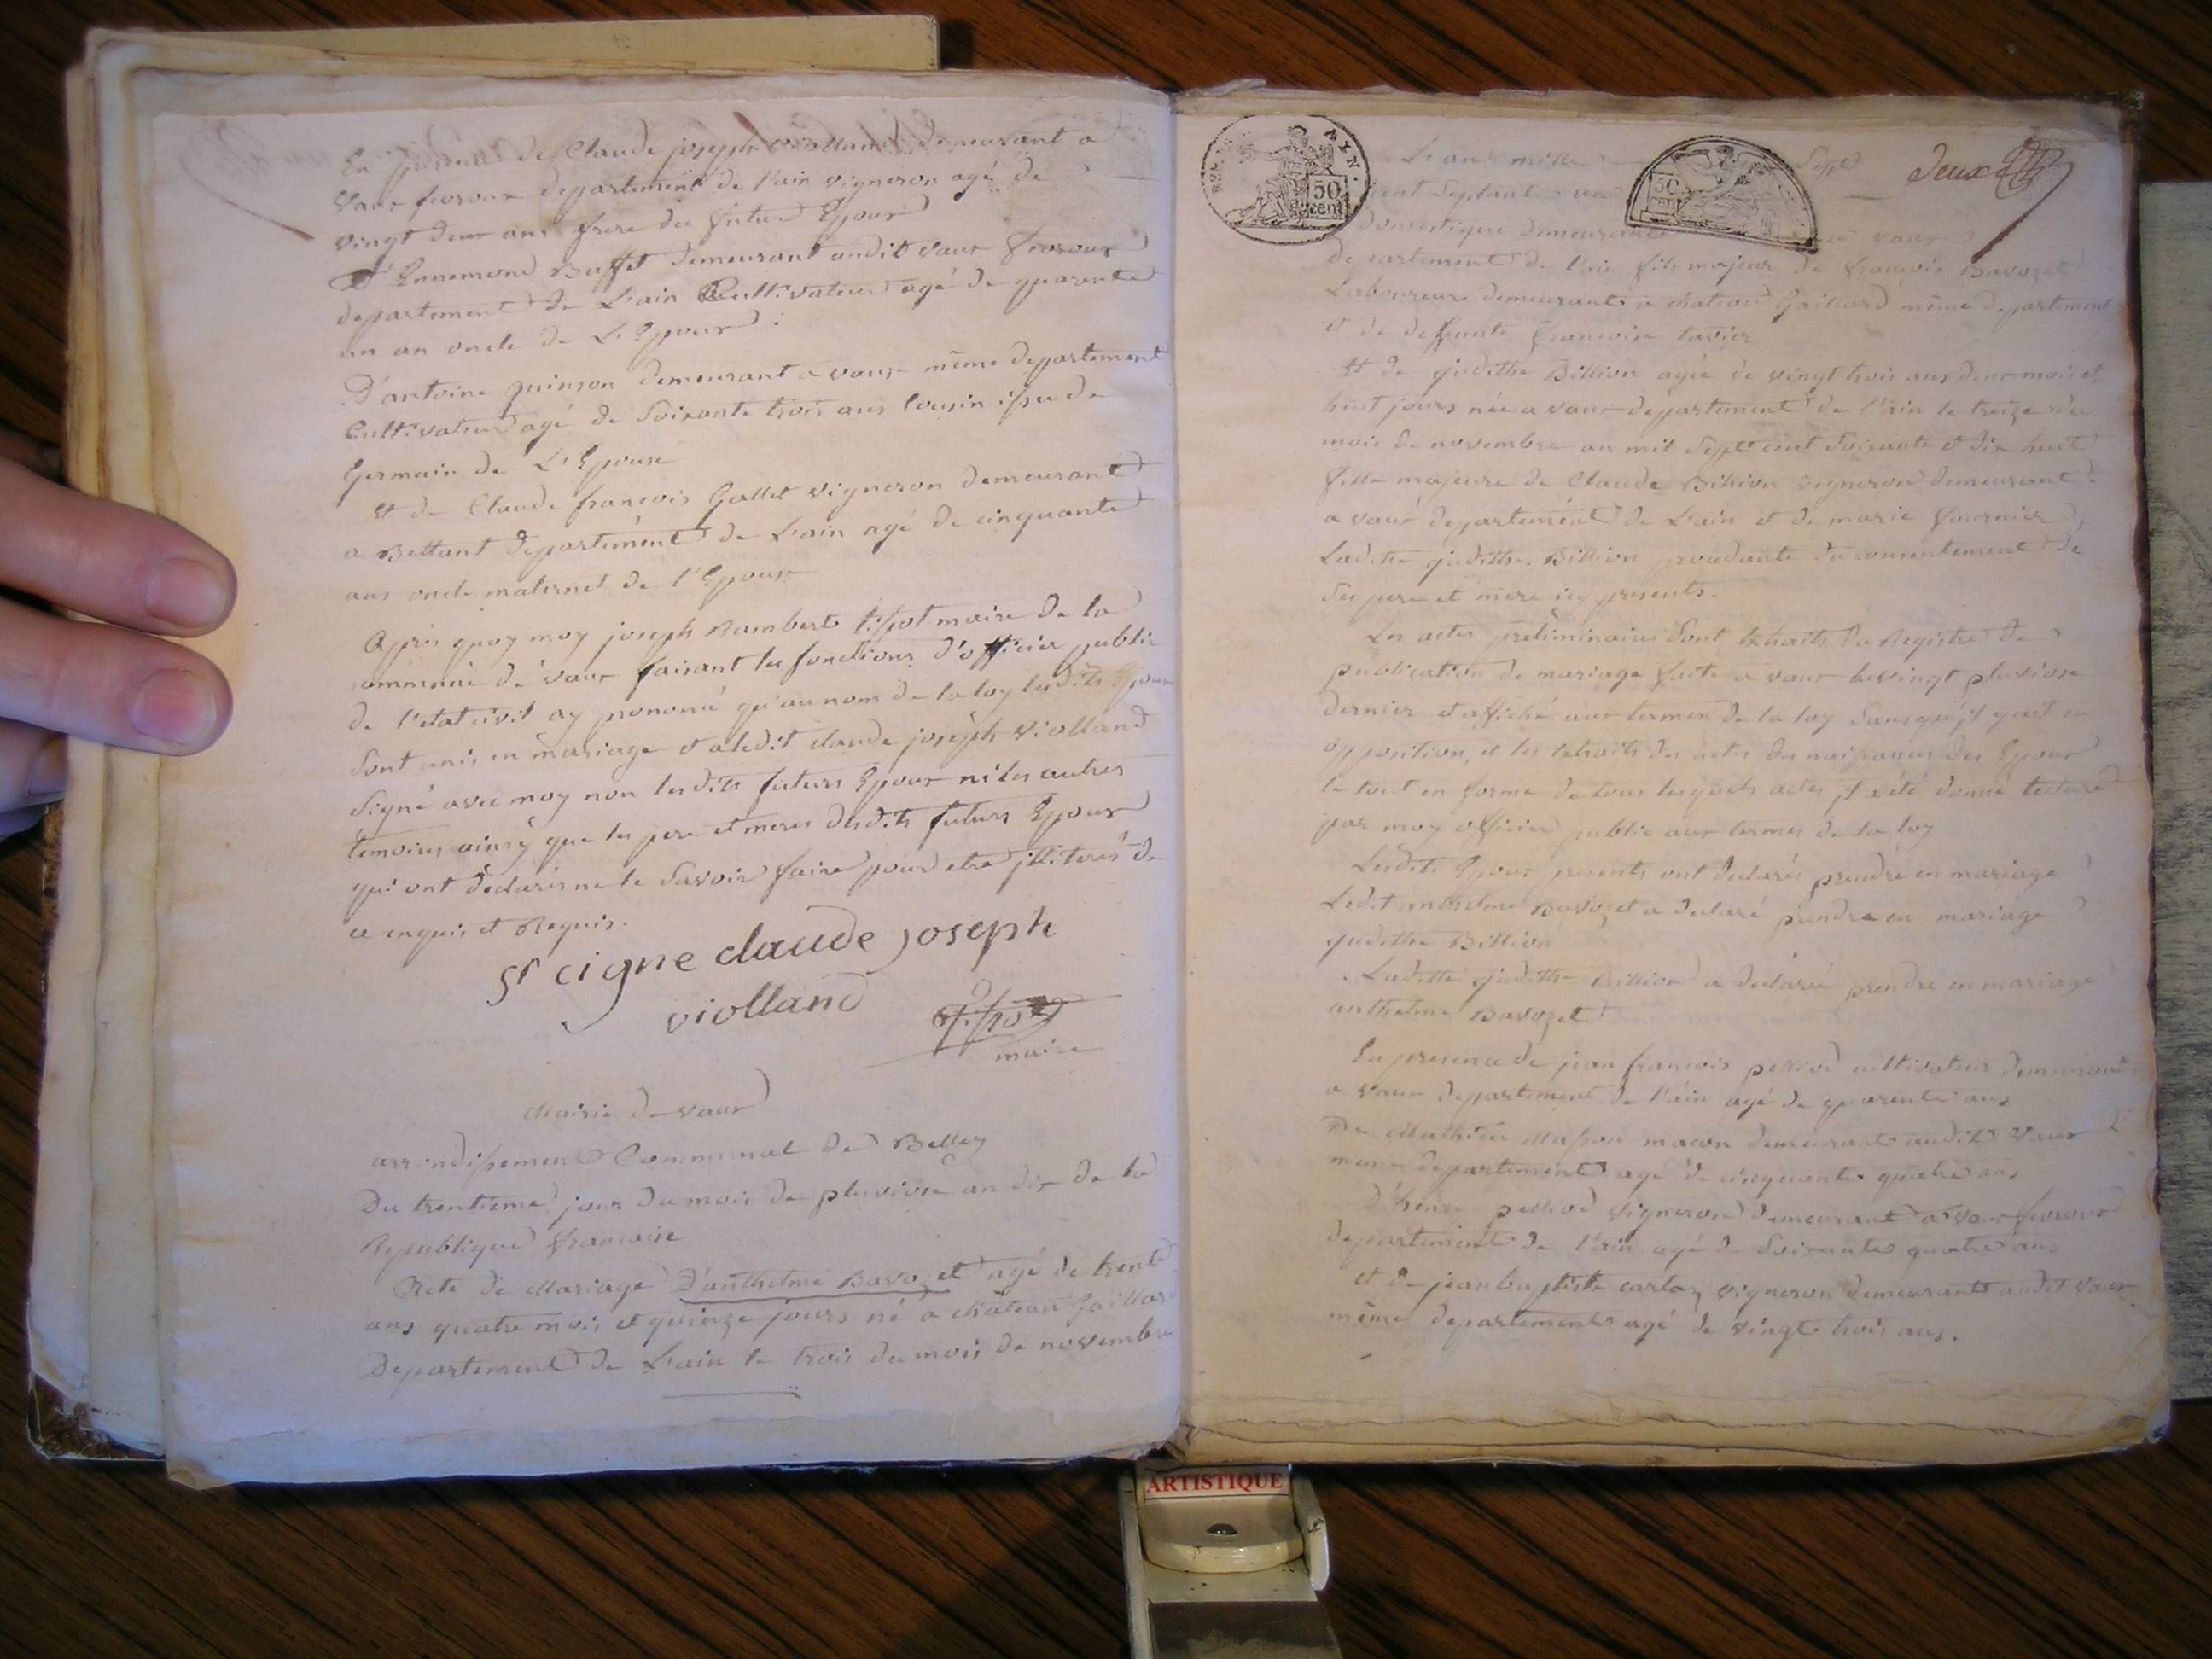 En presence de Claude joseph violland demeurant a
Vaux fevroux departement de l'ain vigneron agé de
vingt deux ans frere du futur Epoux
D'Ennemond Buffet demeurant audit vaux fevroux
departement de L'ain Cultivateur agé de quarente
un an oncle de L'Epoux
D'antoine quinson demeurant a vaux même departement
Cultivateur agé de Soixante trois ans Cousin issu de
Germain de L'Epouse
Et de Claude francois Gallet vigneron demeurant
a Bettant departement de L'ain agé de cinquante
ans oncle maternel de l'Epoux
Apris quoy moy joseph Rambert tissot maire de la
commune de vaux faisant les fonctions d'officier public
de l'etat civil ay prononcé qu'au nom de la loy lesdits Epoux
Sont unis en mariage et a ledit claude joseph violland
Signé avec moy non lesdits futurs Epoux ni les autres
temoins ainsy que les pere et meres desdits futurs Epoux
qui ont declarés ne le Savoir faire pour etre illiterés de
ce enquis et Requis.
St cigne claude joseph
violland
maire
Mairie de vaux
arrondissement Communal de Belley
Du trentieme jour du mois de pluviose an dix de la
Republique francaise
Acte de Mariage D'anthelme Bavozet agé de trente
ans quatre mois et quinze jours né a château Gaillard
Departement de L'ain le trois du mois de novembre
AIN.
50 cent
50 cent
deux
L'an mille Sept
cent Septante un
Domestique demeurant a vaux
departement de l'ain fils majeur de francois Bavozet
Laboureur demeurant a chateau Gaillard même departement
et de deffunte francoise tavier
Et de judithe Billion agée de vingt trois ans deux mois et
huit jours née a vaux departement de l'ain le treize du
mois de novembre an mil Sept cent Soixante et dix huit
fille majeure de Claude Billion vigneron demeurant
a vaux departement de L'ain et de marie fournier,
Laditte judithe Billion procedante du consentement de
Ses pere et mere icy presents.
Les actes preliminaires Sont Extraits du Registre de
publication de mariage faite a vaux le vingt pluviose
dernier et affiché aux termes de la loy Sans qu'il y ait eu
opposition, et les Extraits des actes de naissances des Epoux
le tout en forme de tous lesquels actes il a été donné lecture
par moy officier public aux termes de la loy
Lesdits Epoux presents ont declarés prendre en mariage
Ledit anthelme Bavozet a declaré prendre en mariage
judithe Billion
Laditte judithe Billion a declaré prendre en mariage
anthelme Bavozet
En presence de jean francois pelliod cultivateur demeurant
a vaux departement de l'ain agé de quarente ans
De Mathieu Masson macon demeurant audit vaux
meme departement agé de cinquante quatre ans
D'henry pelliod vigneron demeurant a vaux fevroux
departement de l'ain agé de Soixante quatre ans
et de jean baptiste carlaz vigneron demeurant audit vaux
même departement agé de vingt trois ans.
ARTISTIQUE